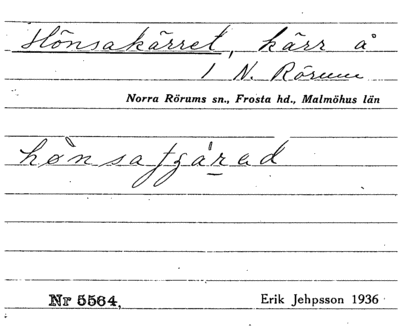 Hönsakärret, kärr å
1 N. Rörum
Norra Rörums sn., Frosta hd., Malmöhus län
Nr 5564. Erik Jehpsson 1936